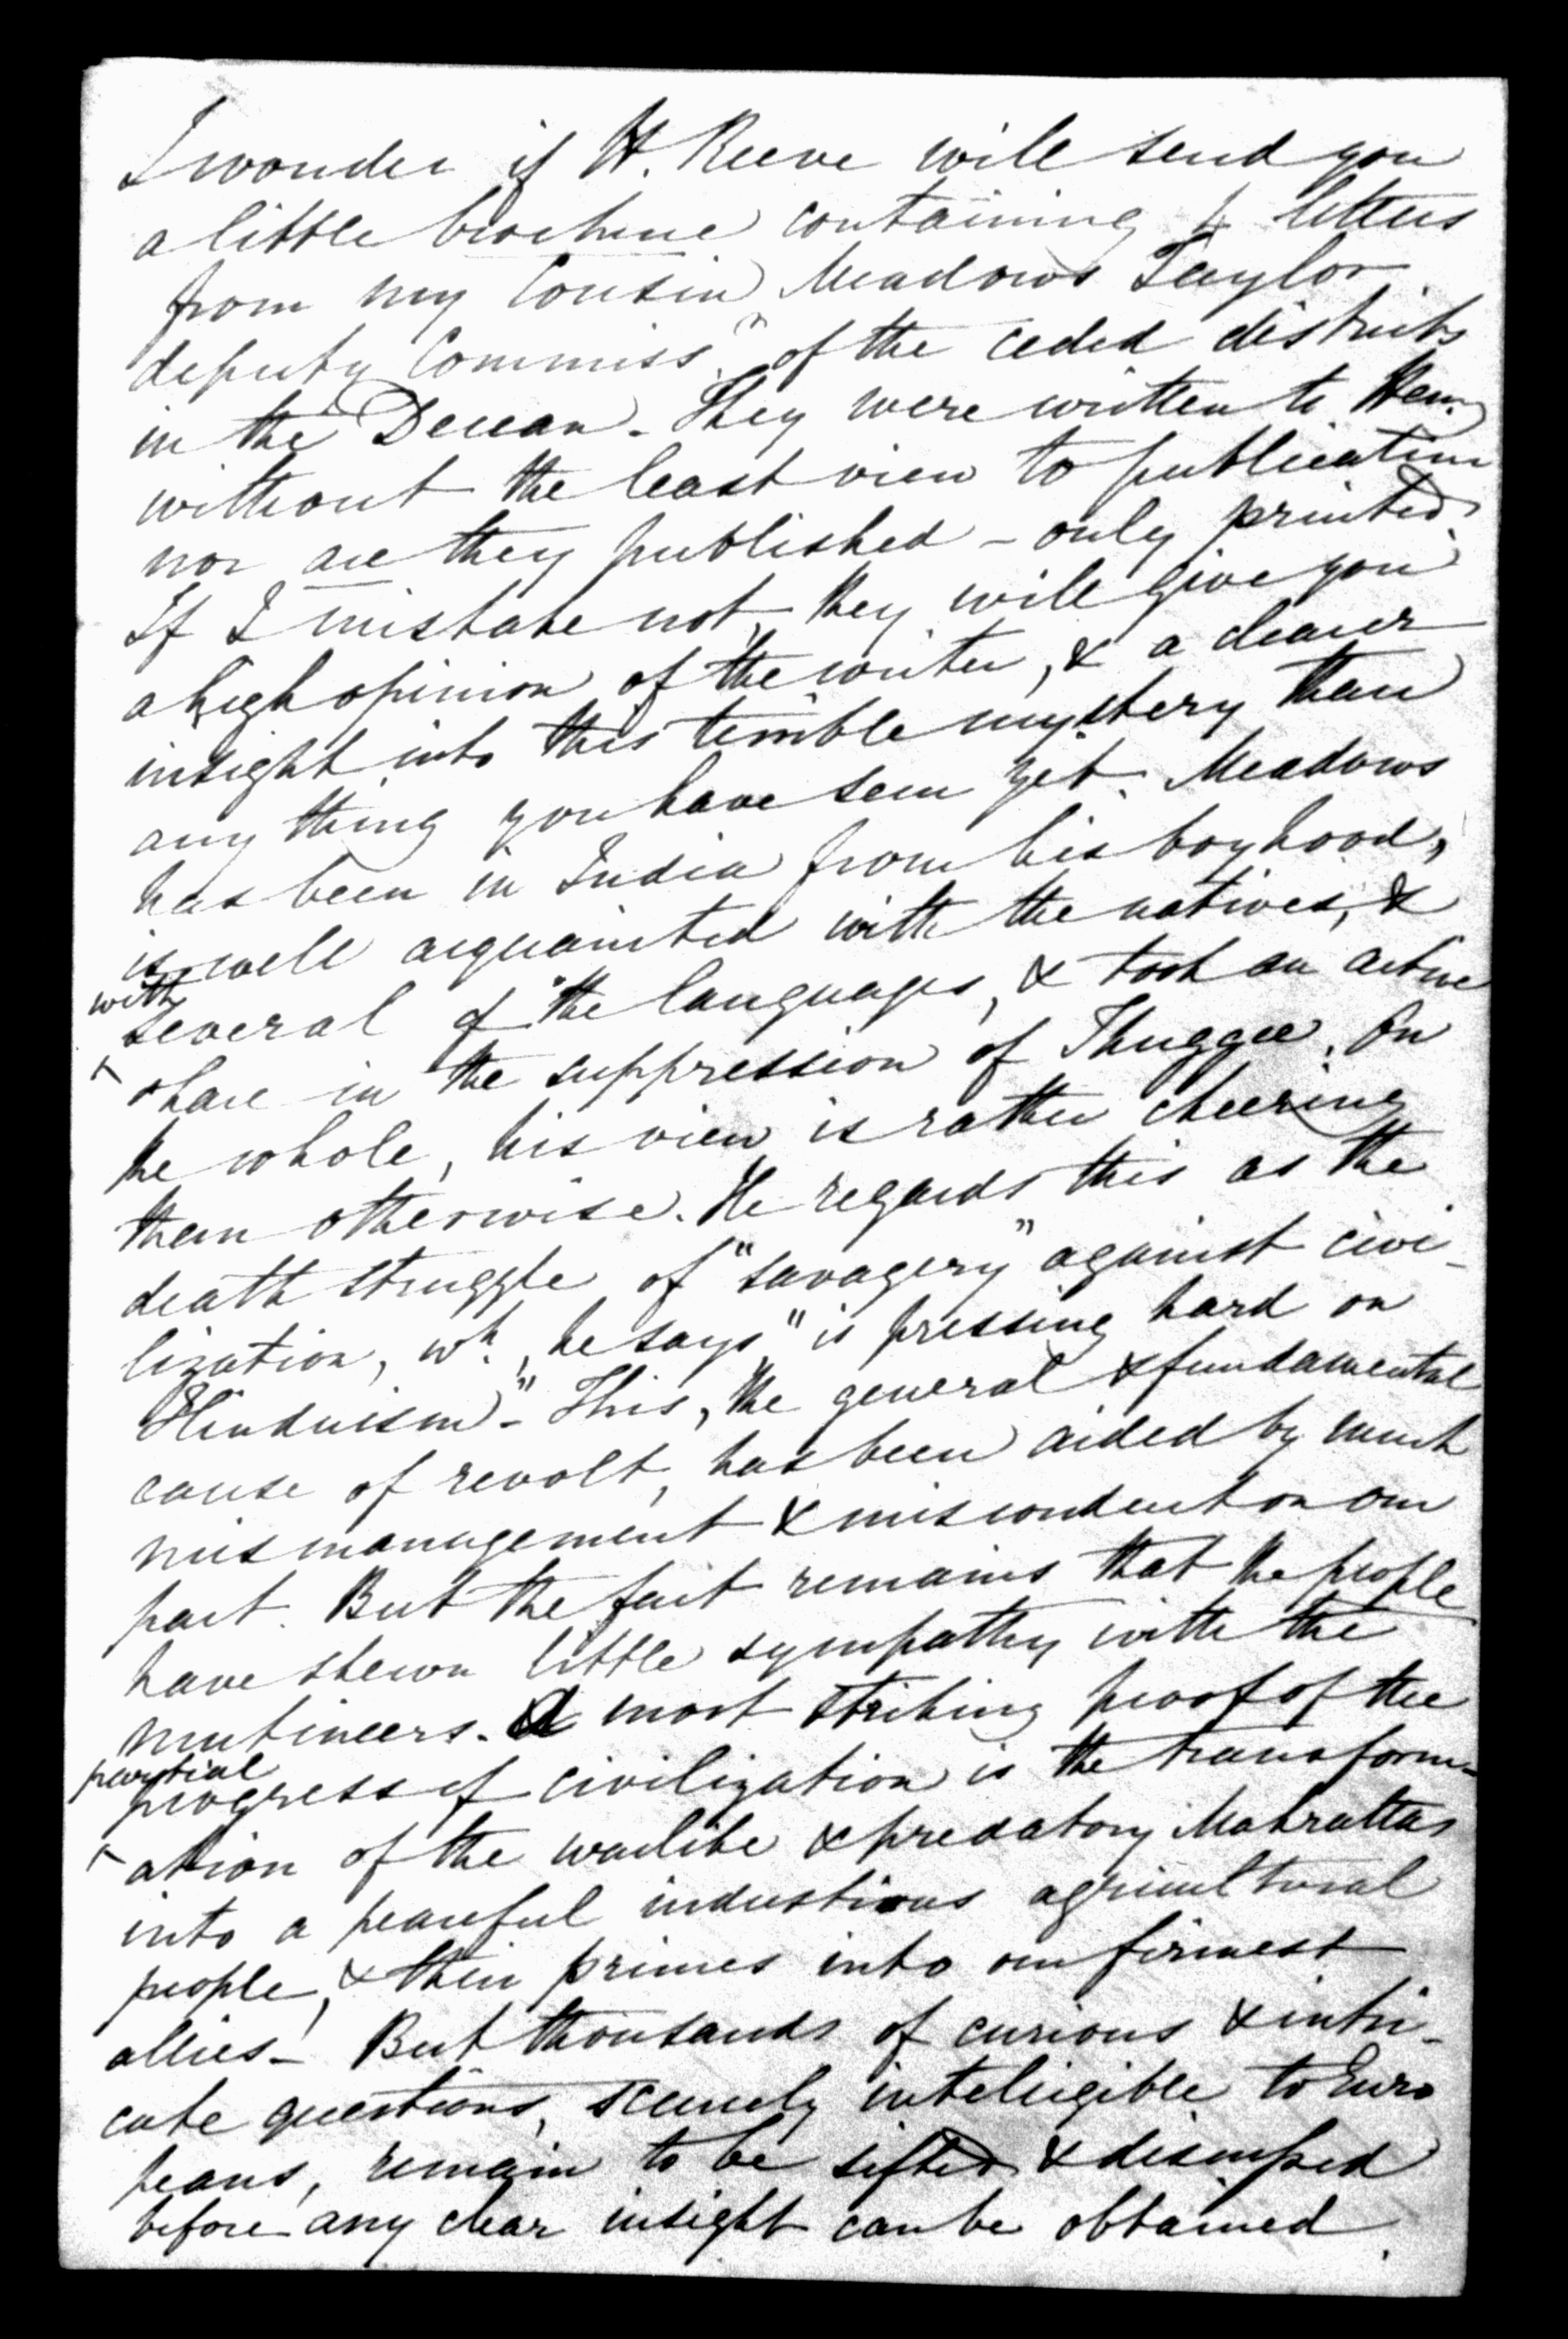 I wonder if H. Reeve will send you
a little brochure containing 4 letters
from my Cousin Meadows Taylor
deputy Commissr. of the ceded districts
in the Deccan - They were written to Hen.
without the least view to publication
nor are they published - only printed.
If I mistake not, they will give you
a high opinion of the writer, & a clearer
insight into this terrible mystery than
any thing you have seen yet. Meadows
has been in India from his boyhood,
is well acquainted with the natives, &
with several of the languages, & took an active
share in the suppression of Thuggee. On
the whole, his view is rather cheering
than otherwise. He regards this as the
death struggle of "savagery" against civi-
lization, wh., he says "is pressing hard on
Hinduism" - This, the general & fundamental
cause of revolt, has been aided by much
mismanagement & misconduct on our
part. But the fact remains that the people
have shewn little sympathy with the
mutineers. A most striking proof of the
partial progress of civilization is the transform-
ation of the warlike & predatory Mahrattas
into a peaceful industrious agricultural
people, & their princes into our firmest
allies - But thousands of curious & intri-
cate questions, scarcely intelligible to Euro
peans, remain to be sifted &
before any clear insight can be obtained.